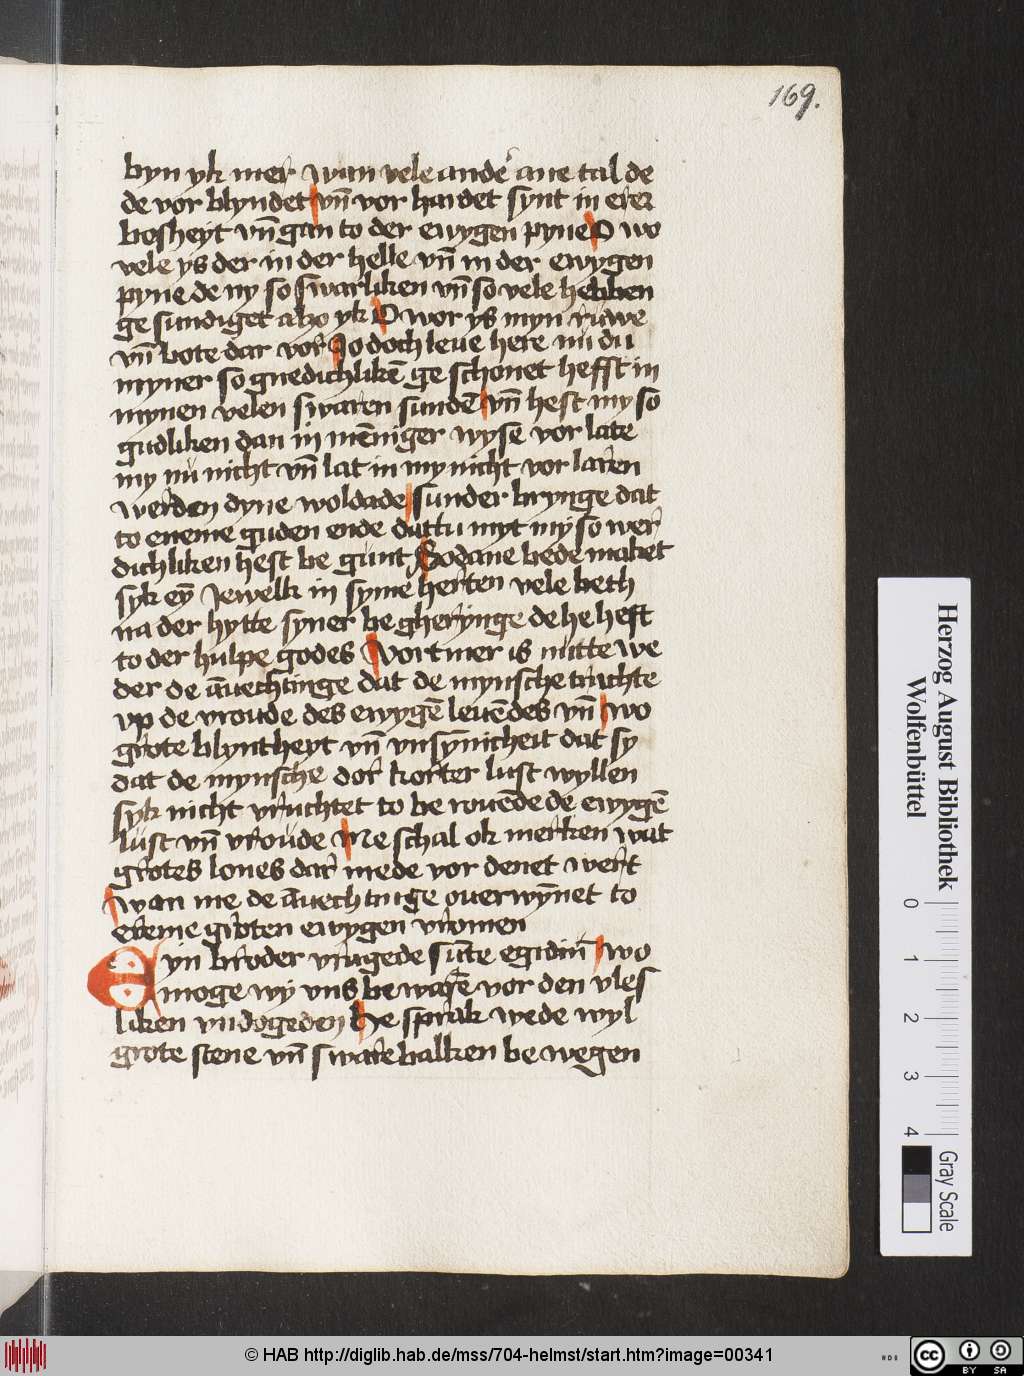 169.
byn yk mer wan vele ander ane tal de
de vor blyndet vñ vor hardet synt in erer
bosheyt vñ gan to der ewygen pyne O wo
vele ys der in der helle vñ in der ewygen
pyne de ny so swarliken vñ so vele hebben
ge sundiget alzo yk O wor ys myn ruwe
vñ bote dar vor Jo doch leue here nu du
myner so gnedichlikē ge schonet hefft in
mynen velen swaren sundē vñ hest my so
gudliken dan in mēniger wyse vor late
my nu nicht vñ lat in my nicht vor laren
werden dyne woldade sunder brynge dat
to eneme guden ende dattu myt my so wer
dichliken hest be gunt Sodane bede maket
syk eȳ Jewelk in syme herten vele beth
na der hytte syner be gherynge de he heft
to der hulpe godes Vort mer is nutte we
der de āuechtinge dat de mynsche trachte
vp de vroude des ewygē leuēdes vñ wo
grote blyntheyt vñ vnsynicheit dat sy
dat de mynsche dor korter lust wyllen
syk nicht vruchtet to be rouēde de ewygē
lust vñ vroude Me schal ok merken wat
grotes lones dar mede vor denet wert
wan me de āuechtinge ouerwȳnet to
eneme groten ewygen vromen
Eyn broder vragede sūte egidiū wo
moge wy vns bewarē vor den vles
liken vndogeden He sprak wede wyl
grote stene vñ sware balken be wegen
Herzog August Bibliothek
Wolfenbüttel
0 1 2 3 4
Gray Scale
© HAB http://diglib.hab.de/mss/704-helmst/start.htm?image=00341
cc BY SA